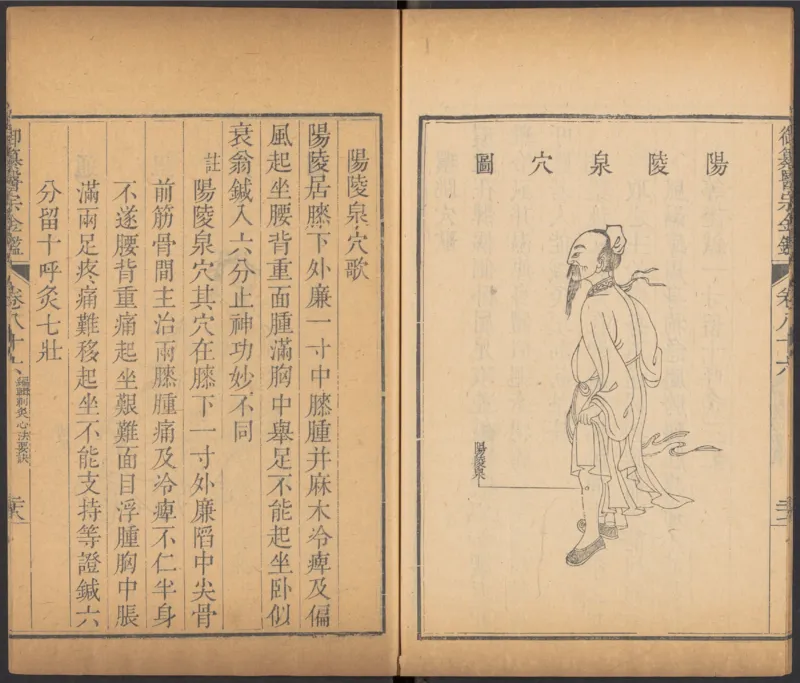 陽陵泉穴圖
陽陵泉
御纂醫宗金鑑
卷八十六
陽陵泉穴歌
陽陵居膝下外廉一寸中膝腫并麻木冷痺及偏
風起坐腰背重面腫滿胸中舉足不能起坐卧似
衰翁鍼入六分止神功妙不同
註陽陵泉穴其穴在膝下一寸外廉陷中尖骨
前筋骨間主治兩膝腫痛及冷痺不仁半身
不遂腰背重痛起坐艱難面目浮腫胸中脹
滿兩足疼痛難移起坐不能支持等證鍼六
分留十呼灸七壯
御纂醫宗金鑑
卷八十六
編輯刺灸心法要訣